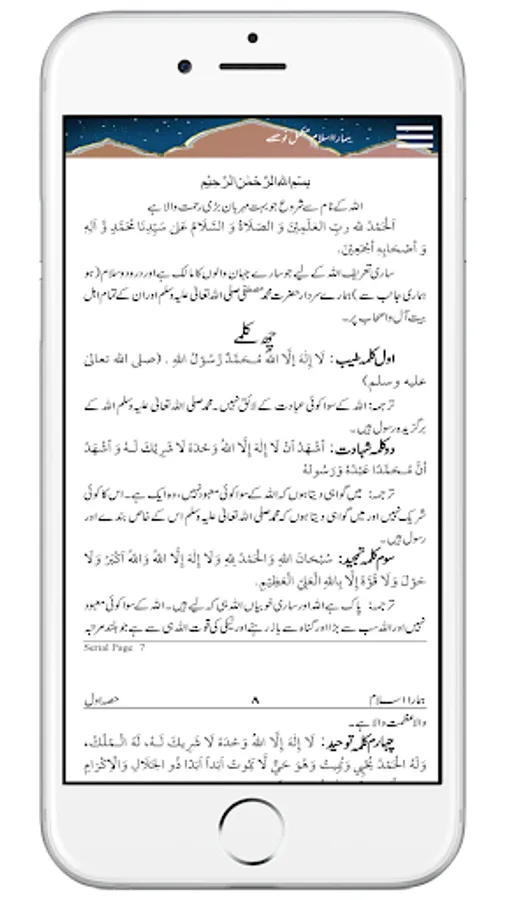 ہمارا اسلام مکمل نو حصے
بِسْمِ اللهِ الرَّحْمٰنِ الرَّحِيْمِ
اللہ کے نام سے شروع جو بہت مہربان بڑی رحمت والا ہے
اَلْحَمْدُ لله رَبِّ الْعٰلَمِيْنَ وَ الصَّلَاةُ وَ السَّلَامُ عَلٰى سَيِّدِنَا مُحَمَّدٍ وَّ اٰلِهٖ
وَ اَصْحَابِهٖ اَجْمَعِيْنَ.
ساری تعریف اللہ کے لیے جو سارے جہان والوں کا مالک ہے اور درود و سلام (ہو
ہماری جانب سے) ہمارے سردار حضرت محمد مصطفٰی صلی اللہ تعالیٰ علیہ وسلم اور ان کے تمام اہل
بیت آل و اصحاب پر۔
چھ کلمے
اول کلمہ طیب: لَا اِلٰهَ اِلَّا اللهُ مُحَمَّدٌ رَّسُوْلُ اللهِ . (صلى الله تعالىٰ
عليه وسلم)
ترجمہ: اللہ کے سوا کوئی عبادت کے لائق نہیں۔ محمد صلی اللہ تعالیٰ علیہ وسلم اللہ کے
برگزیدہ رسول ہیں۔
دو کلمہ شہادت: اَشْهَدُ اَنْ لَا اِلٰهَ اِلَّا اللهُ وَحْدَهٗ لَا شَرِيْكَ لَـهٗ وَ اَشْهَدُ
اَنَّ مُـحَمَّدًا عَبْدُهٗ وَرَسُوْلُهٗ
ترجمہ: میں گواہی دیتا ہوں کہ اللہ کے سوا کوئی معبود نہیں، وہ ایک ہے۔ اس کا کوئی
شریک نہیں اور میں گواہی دیتا ہوں کہ محمد صلی اللہ تعالیٰ علیہ وسلم اس کے خاص بندے اور
رسول ہیں۔
سوم کلمہ تمجید: سُبْحَانَ اللهِ وَالْحَمْدُ لِلّٰهِ وَلَا اِلٰهَ اِلَّا اللهُ وَاللهُ اَكْبَرُ وَلَا
حَوْلَ وَلَا قُوَّةَ اِلَّا بِاللهِ الْعَلِيِّ الْعَظِيْمِ.
ترجمہ: پاک ہے اللہ اور ساری خوبیاں اللہ ہی کہ لیے ہیں۔ اللہ کے سوا کوئی معبود
نہیں اور اللہ سب سے بڑا اور گناہ سے باز رہنے اور نیکی کی قوت اللہ ہی سے ہے جو بلند مرتبہ
Serial Page 7
ہمارا اسلام ۸ حصہ اول
والا عظمت والا ہے۔
چہارم کلمہ توحید: لَا اِلٰهَ اِلَّا اللهُ وَحْدَهٗ لَا شَرِيْكَ لَـهٗ، لَهُ الْـمُلْكُ،
وَلَهُ الْحَمْدُ يُحْيِيْ وَيُمِيْتُ وَهُوَ حَيٌّ لَّا يَمُوْتُ اَبَداً اَبَدًا ذُو الْجَلَالِ وَالْاِكْرَامِ